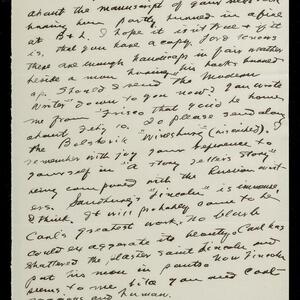 about the manuscript of your new book
having been partly burned in a fire
at B & L. I hope it isn't true - if it
is, that you have a copy. Lord knows
there are enough handicaps in fair weather
beside a man having his books burned
up. Should I send the Modern
Writer down to you now? You wrote
me from 'Frisco that you'd be home
about Feby 10. Do please send along
the Bolshevik "Winesburg" (if needed). I
remember with joy your reference to
yourself in "A Story Teller's Story"
being compared with the Russian writ-
ers. Sandburg's "Lincoln" is immense,
I think. It will probably come to be
Carl's greatest work. No blurb
could exaggerate its beauty. Carl has
shattered the plaster saint Lincoln and
put him more in pants. Now Lincoln
seems to me like you and Carl -
and human.